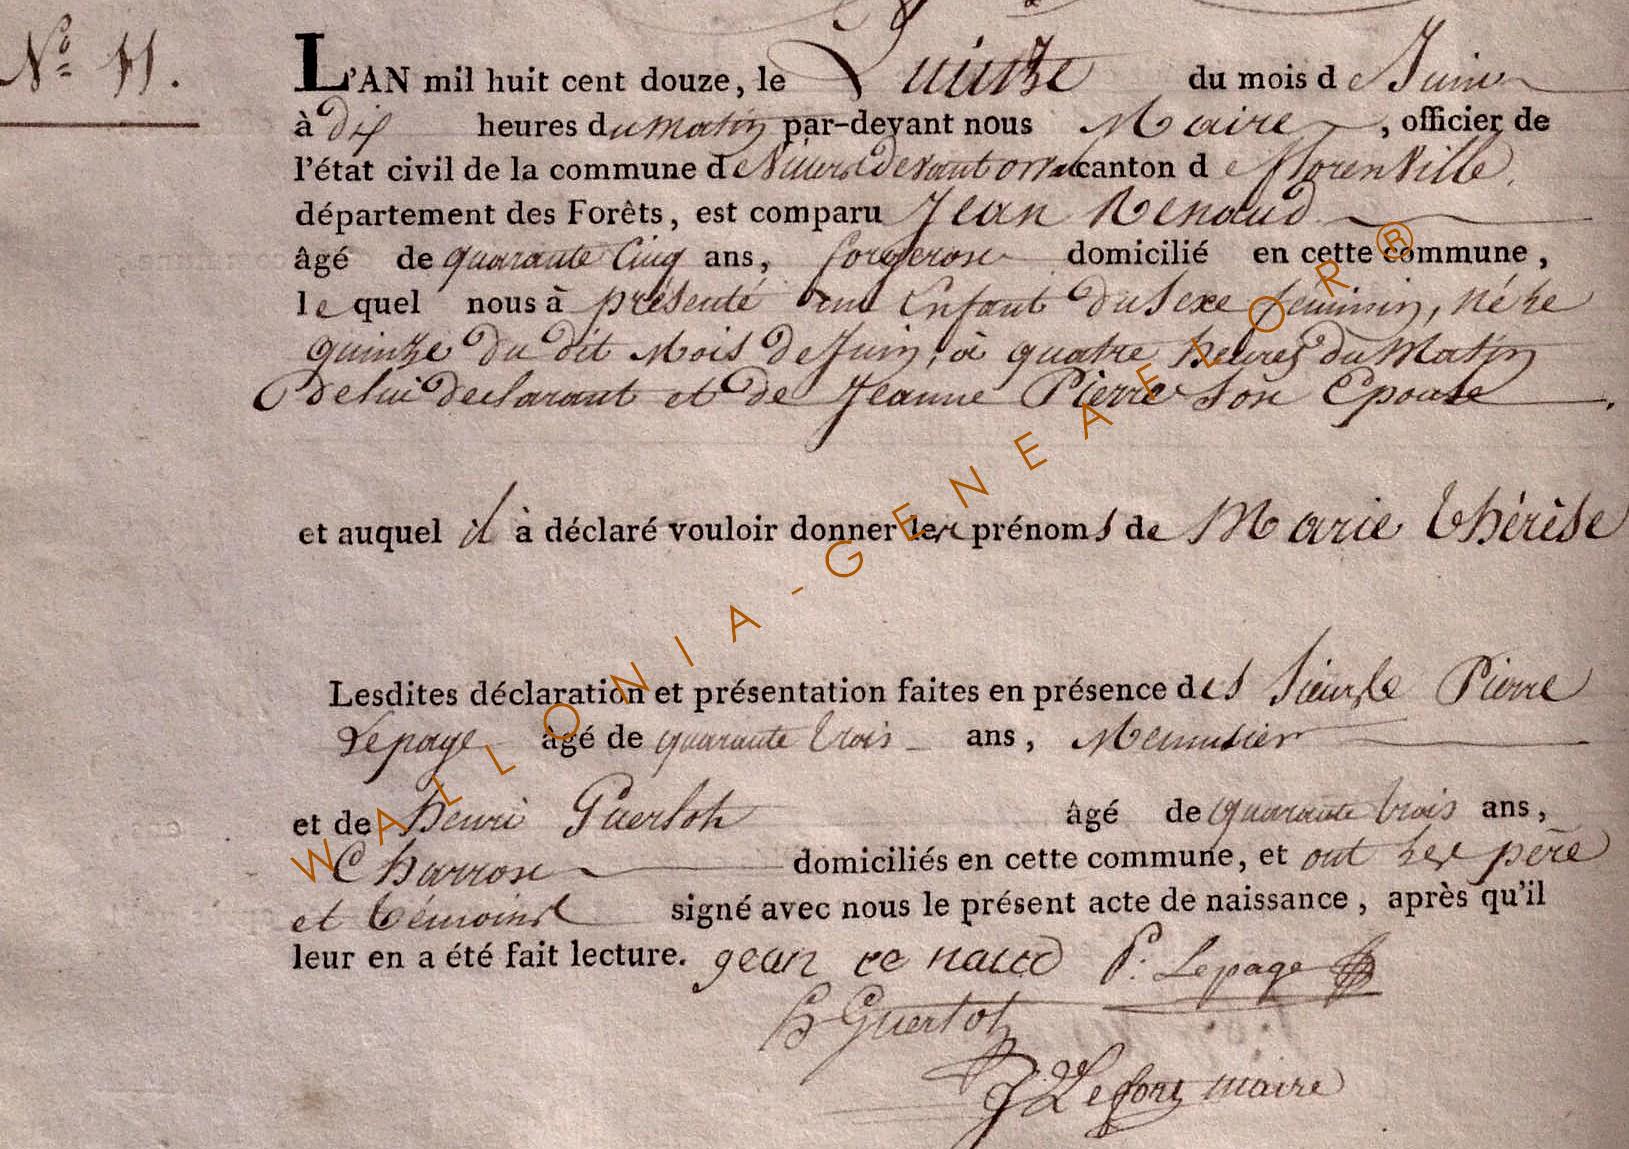 N° 11.
L'AN mil huit cent douze, le Quinze du mois de Juin
à dix heures du matin par-devant nous Maire, officier de
l'état civil de la commune de Villers devant orval canton de florenville,
département des Forêts, est comparu Jean Renaud
âgé de quarante Cinq ans, forgeron domicilié en cette commune,
le quel nous à présenté un Enfant du sexe feminin, né le
quinze du dit mois de Juin, à quatre heures du Matin
de lui declarant et de Jeanne Pierre son Epouse.
et auquel il à déclaré vouloir donner les prénoms de Marie thérèse
Lesdites déclaration et présentation faites en présence des sieurs Pierre
Lepage âgé de quarante trois ans, Menusier
et de henri Guerlot âgé de quarante trois ans,
Charron domiciliés en cette commune, et ont les père
et témoins signé avec nous le présent acte de naissance, après qu'il
leur en a été fait lecture. gean re naud P. Lepage
h Guerlot
J Lefort maire
WALLONIA-GENEALOR®